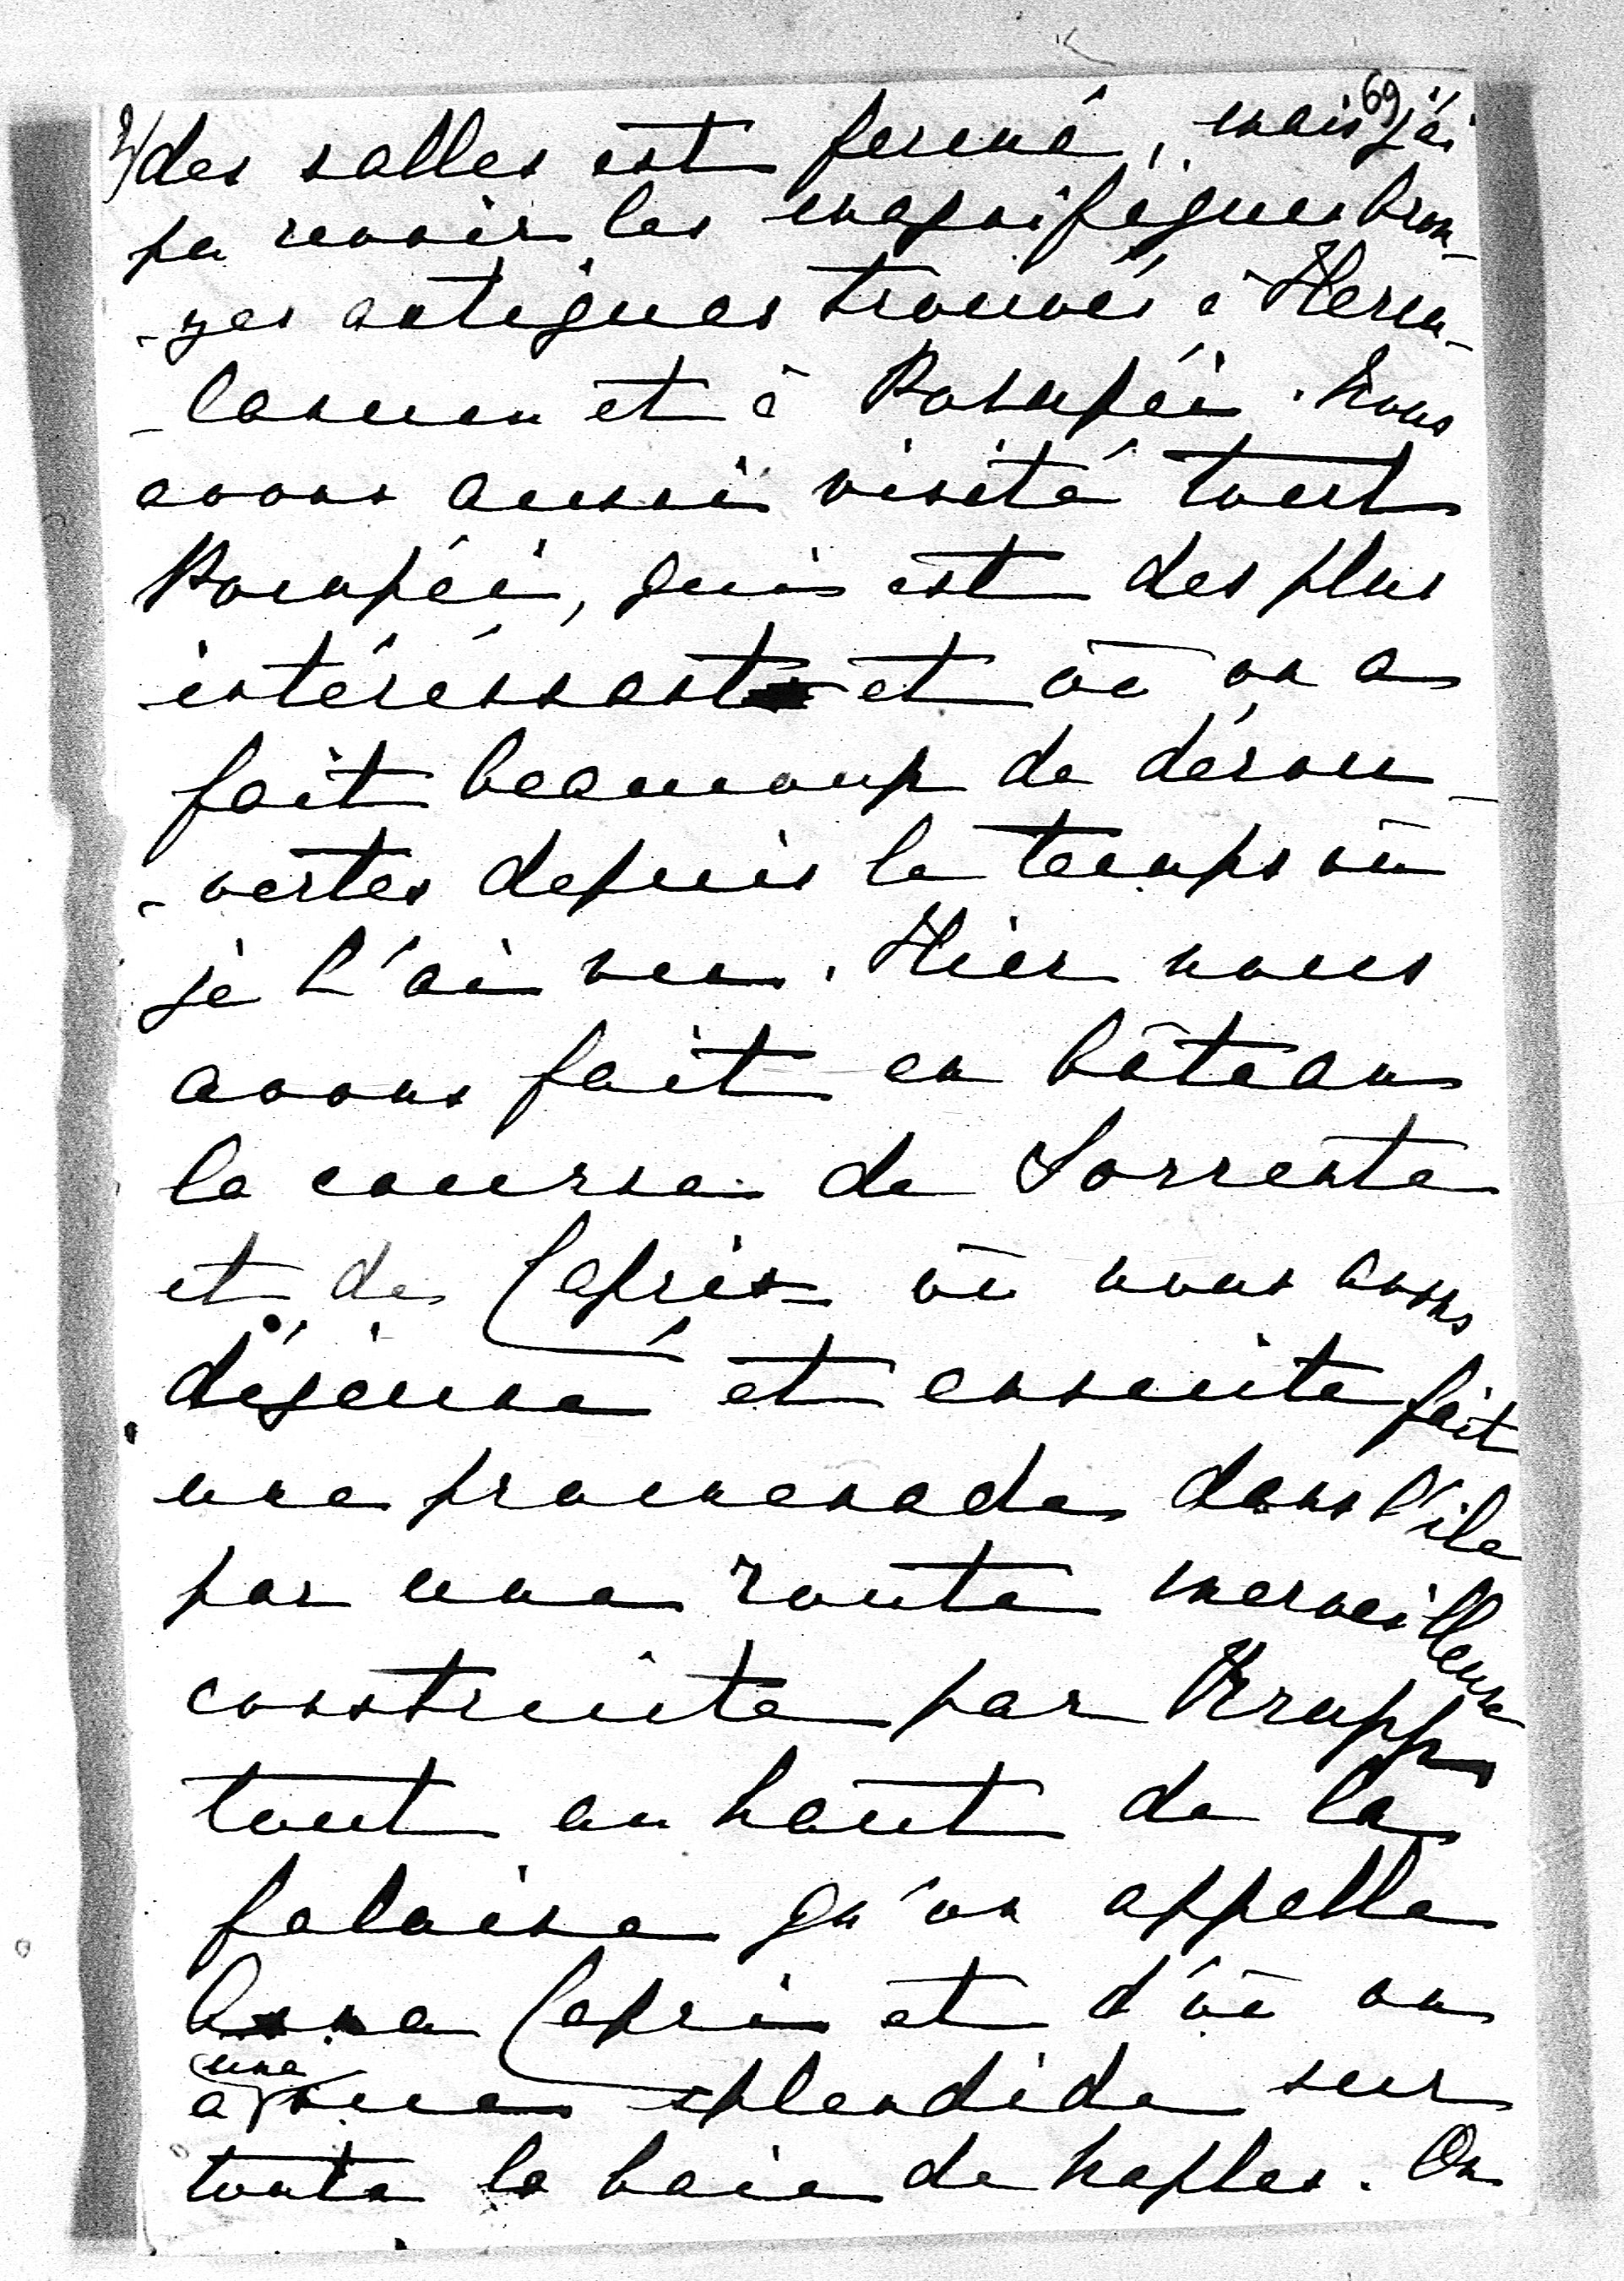 69
3/ des salles est fermé, mais j'ai
pu revoir les magnifiques bron-
-zes antiques trouvés à Hercu-
-lanum et à Pompéi. Nous
avons aussi visité tout
Pompéi, qui est des plus
intéressant et où on a
fait beaucoup de décou-
-vertes depuis le temps où
je l'ai vu. Hier nous
avons fait en bâteau
la course de Sorrente
et de Capri où nous avons
déjeuné et ensuite fait
une promenade dans l'île
par une route merveilleuse
construite par Krupp
tout en haut de la
falaise qu'on appelle
Capri et d'où on
a une vue splendide sur
toute la baie de Naples. On